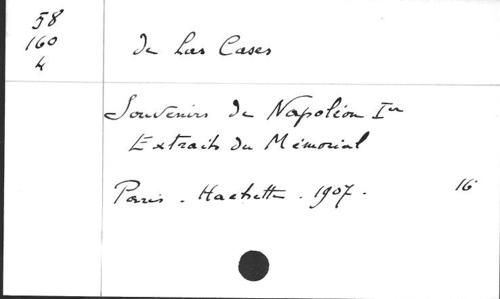 58
160
4
de Las Cases
Souvenirs de Napoléon Ier
Extraits du Mémorial
Paris . Hachette . 1907 . 16°